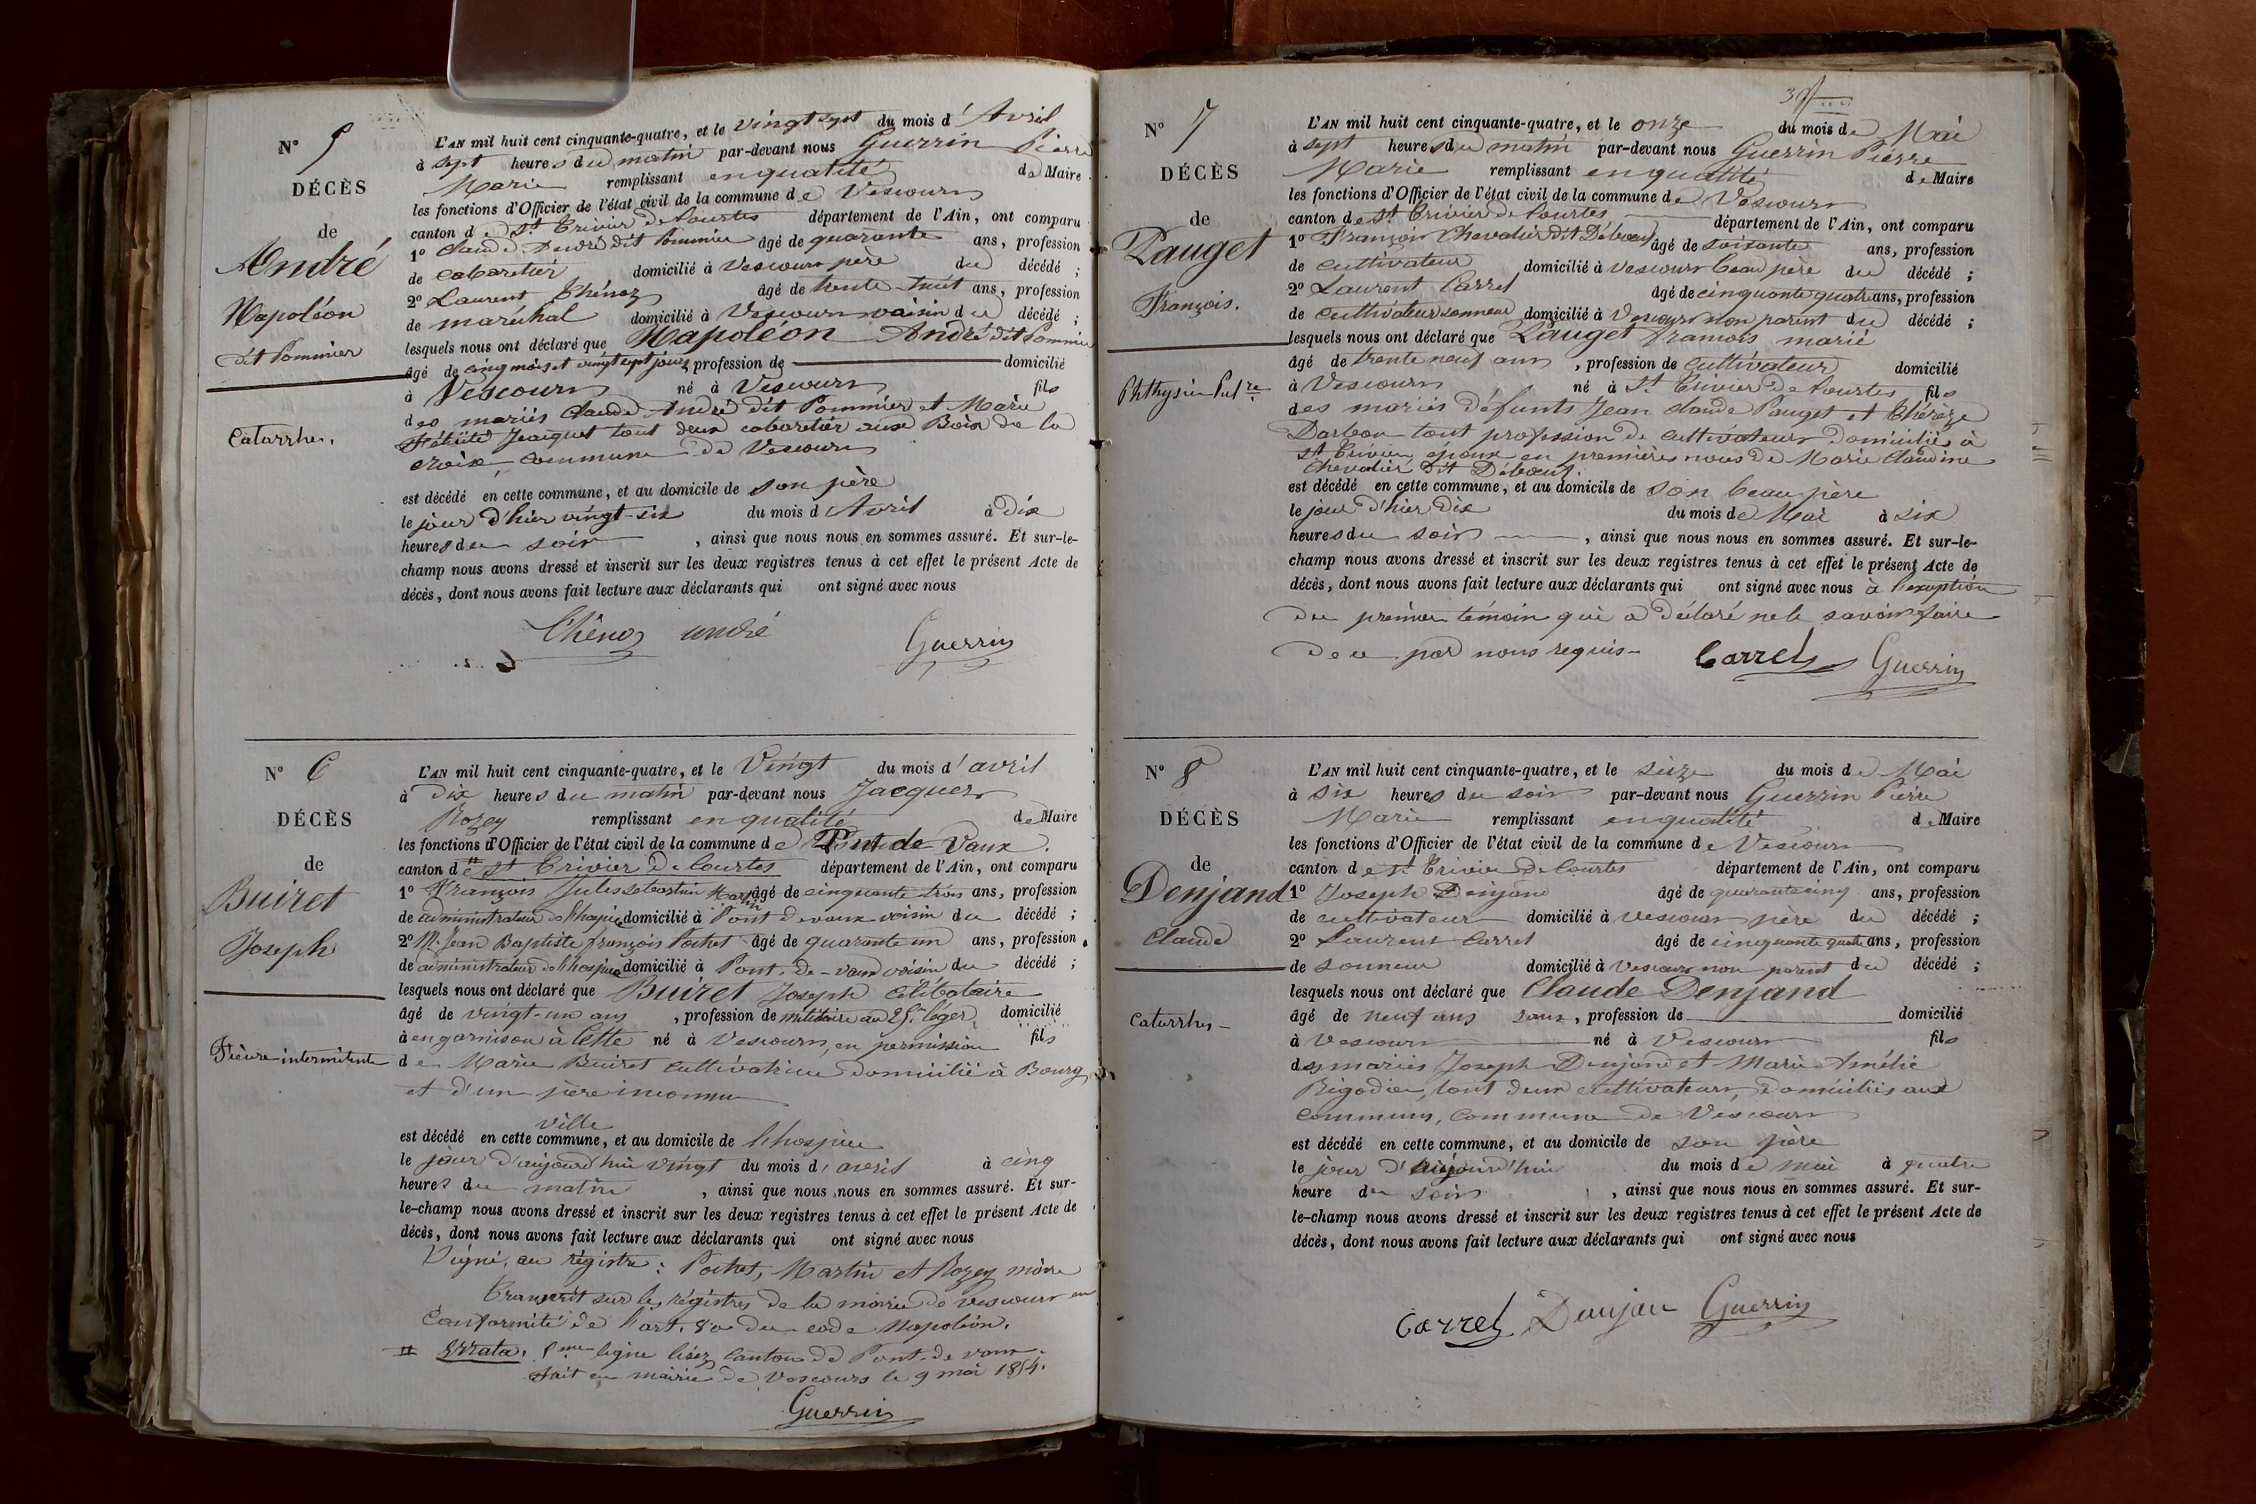 N° 5
DÉCÈS
de
André
Napoléon
dit Pommier
Catarrhe.
L'AN mil huit cent cinquante-quatre, et le vingt sept du mois d'Avril
à sept heures du matin par-devant nous Guerrin Pierre
Marie remplissant en qualité de Maire
les fonctions d'Officier de l'état civil de la commune de Vescours
canton de St Trivier de Courtes département de l'Ain, ont comparu
1° Claude André dit Pommier âgé de quarante ans, profession
de cabaretier domicilié à Vescours père du décédé ;
2° Laurent Thénoz âgé de trente-huit ans, profession
de maréchal domicilié à Vescours voisin du décédé ;
lesquels nous ont déclaré que Napoléon André dit Pommier
âgé de cinq mois et vingt sept jours profession de domicilié
à Vescours né à Vescours fils
des mariés Claude André dit Pommier et Marie
Félicité Jacquet tout deux cabaretier aux Bois de la
croix, commune de Vescours
est décédé en cette commune, et au domicile de son père
le jour d'hier vingt-six du mois d'Avril à dix
heures du soir , ainsi que nous nous en sommes assuré. Et sur-le-
champ nous avons dressé et inscrit sur les deux registres tenus à cet effet le présent Acte de
décès, dont nous avons fait lecture aux déclarants qui ont signé avec nous
Thénoz andré Guerrin
N° 6
DÉCÈS
de
Buiret
Joseph
Fièvre intermitente
L'AN mil huit cent cinquante-quatre, et le Vingt du mois d'avril
à Dix heures du matin par-devant nous Jacques
Rozey remplissant en qualité de Maire
les fonctions d'Officier de l'état civil de la commune de Pont de Vaux.
canton de St Trivier de Courtes département de l'Ain, ont comparu
1° François Jules Sébastien Martin âgé de cinquante trois ans, profession
de administrateur de l'hospice domicilié à Pont devaux voisin du décédé ;
2° Mr Jean Baptiste françois Pochet âgé de quarante un ans, profession
de administrateur de l'hospice domicilié à Pont-de-vaux voisin du décédé ;
lesquels nous ont déclaré que Buiret Joseph célibataire
âgé de vingt-un ans , profession de militaire au 25me léger domicilié
à en garnison à Cette né à Vescours, en permission fils
de Marie Buiret cultivatrice domicilié à Bourg
et d'un père inconnu
ville
est décédé en cette commune, et au domicile de l'hospice
le jour d'aujourd'hui vingt du mois d'avril à cinq
heures du matin , ainsi que nous nous en sommes assuré. Et sur-
le-champ nous avons dressé et inscrit sur les deux registres tenus à cet effet le présent Acte de
décès, dont nous avons fait lecture aux déclarants qui ont signé avec nous
Signé, au régistre : Pochet, Martin et Rozey maire
Transcrit sur les régistres de la mairie de vescours en
Conformité de l'art. 80 du code Napoléon.
# Errata. 5me ligne lisez Canton de Pont-de vaux.
Fait en mairie de Vescours le 9 mai 1854.
Guerrin
N° 7
DÉCÈS
de
Pauget
François.
Phthysie Pulre
L'AN mil huit cent cinquante-quatre, et le onze du mois de Mai
à sept heures du matin par-devant nous Guerrin Pierre
Marie remplissant en qualité de Maire
les fonctions d'Officier de l'état civil de la commune de Vescours
canton de St Trivier de Courtes département de l'Ain, ont comparu
1° François Chevalier dit Débœuf âgé de soixante ans, profession
de cultivateur domicilié à Vescours beau père du décédé ;
2° Laurent Carrel âgé de cinquante quatre ans, profession
de cultivateur sonneur domicilié à Vescours non parent du décédé ;
lesquels nous ont déclaré que Pauget François marié
âgé de trente neuf ans , profession de cultivateur domicilié
à Vescours né à St Trivier de Courtes fils
des mariés défunts Jean Claude Pauget et Thérèze
Darbon tout profession de cultivateurs domiciliés à
St Trivier, époux en première nous de Marie Claudine
Chevalier dit Débœuf.
est décédé en cette commune, et au domicile de son beau père
le jour d'hier dix du mois de Mai à six
heures du soir , ainsi que nous nous en sommes assuré. Et sur-le-
champ nous avons dressé et inscrit sur les deux registres tenus à cet effet le présent Acte de
décès, dont nous avons fait lecture aux déclarants qui ont signé avec nous à l'exception
du premier témoin qui a déclaré ne le savoir faire
de ce par nous requis- Carrel Guerrin
N° 8
DÉCÈS
de
Denjand
Claude
Catarrhe-
L'AN mil huit cent cinquante-quatre, et le seize du mois de Mai
à six heures du soir par-devant nous Guerrin Pierre
Marie remplissant en qualité de Maire
les fonctions d'Officier de l'état civil de la commune de Vescours
canton de St Trivier de Courtes département de l'Ain, ont comparu
1° Joseph Denjand âgé de quarante cinq ans, profession
de cultivateur domicilié à Vescours père du décédé ;
2° Laurent Carrel âgé de cinquante quatre ans, profession
de sonneur domicilié à Vescours non parent du décédé ;
lesquels nous ont déclaré que Claude Denjand
âgé de neuf ans sans, profession de domicilié
à Vescours né à Vescours fils
des mariés Joseph Denjand et Marie Amélie
Bigodier, tout deux cultivateurs, domiciliés aux
communs, commune de Vescours
est décédé en cette commune, et au domicile de son père
le jour d'aujourd'hui du mois de mai à quatre
heure du soir , ainsi que nous nous en sommes assuré. Et sur-
le-champ nous avons dressé et inscrit sur les deux registres tenus à cet effet le présent Acte de
décès, dont nous avons fait lecture aux déclarants qui ont signé avec nous
Carrel Danjan Guerrin